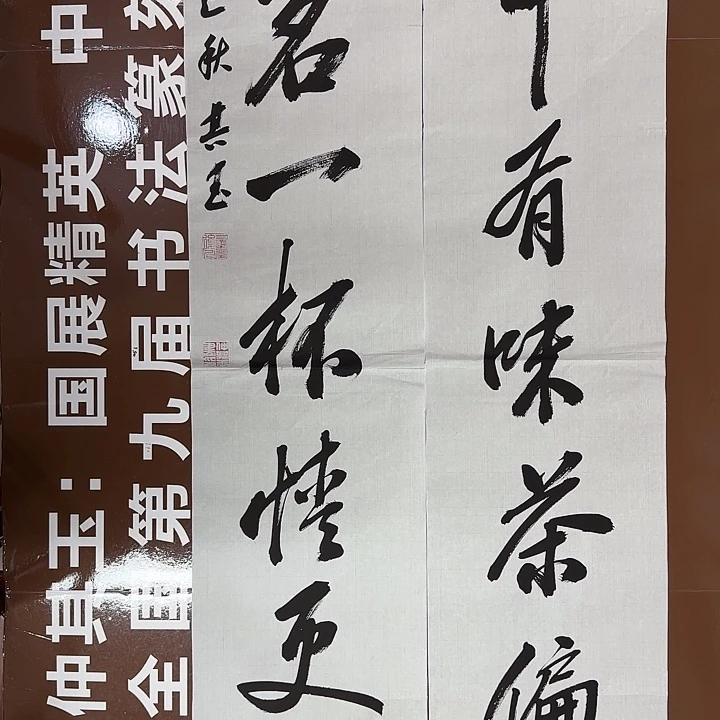 有味茶偏
茗一杯情更
秋其玉
仲其玉：国展精英 中
全国第九届书法篆刻